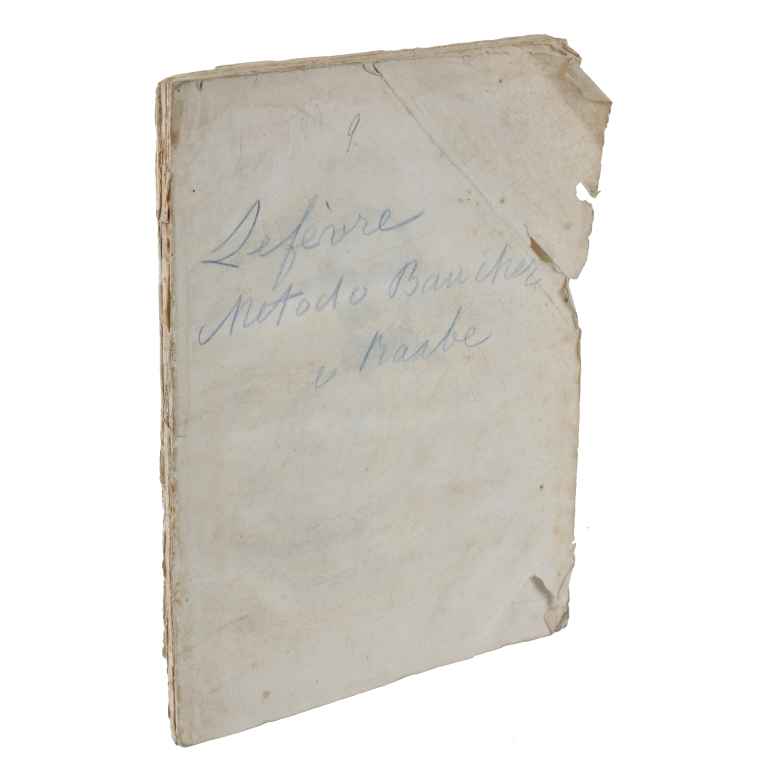 9
Lefèvre
Metodo Baucher
e Raabe